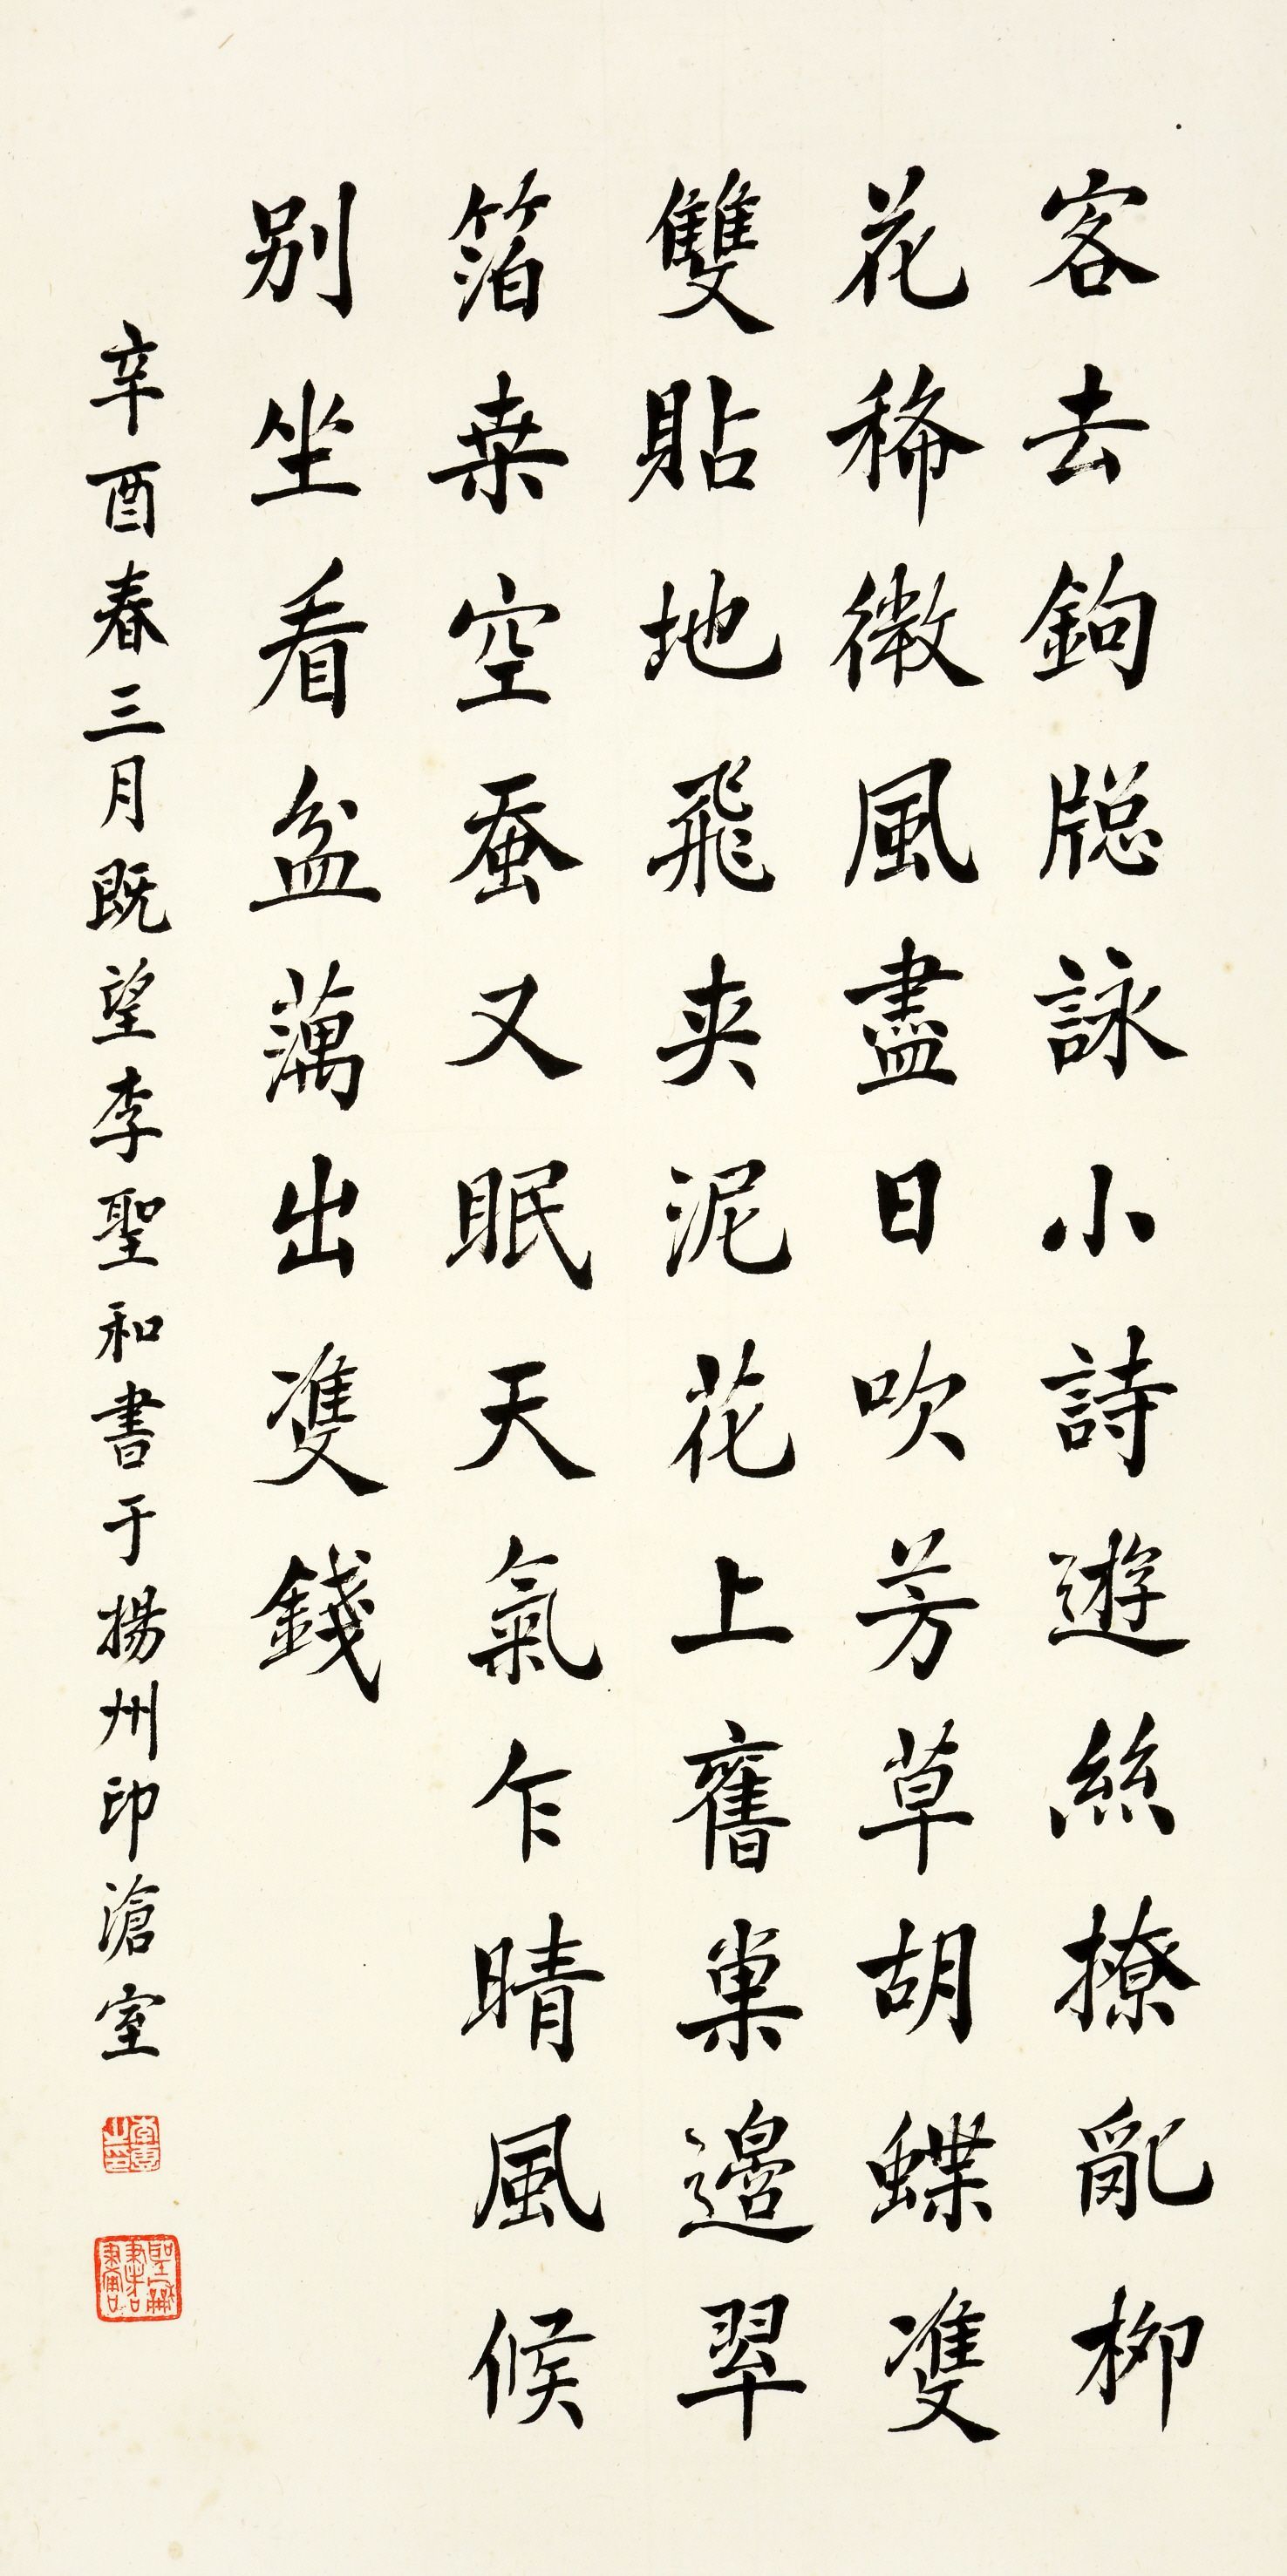 客去鉤牎詠小詩遊絲撩亂柳
花稀微風盡日吹芳草胡蝶雙
雙貼地飛夾泥花上舊巢邊翠
箔桒空蚕又眠天氣乍晴風候
別坐看盆藕出雙錢
辛酉春三月既望李聖和書于揚州印滄室